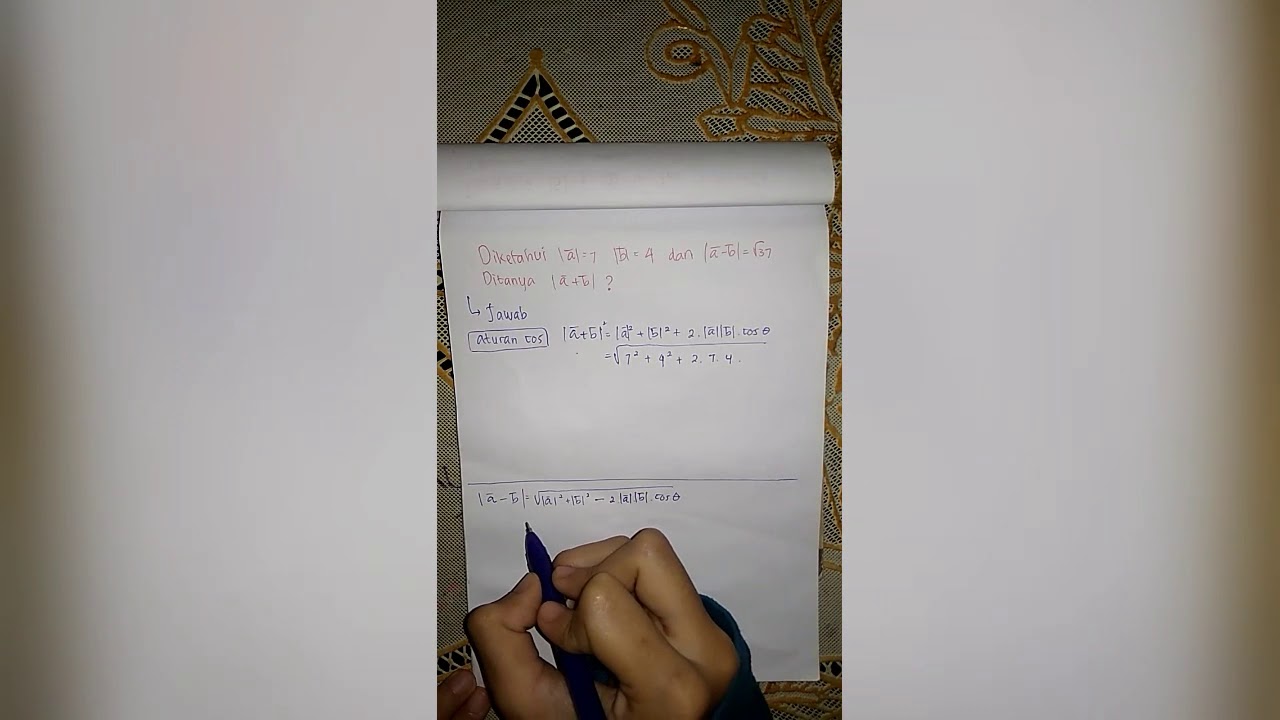 Diketahui |a̅|=7 |b̅|=4 dan |a̅-b̅|=√37
Ditanya |a̅+b̅| ?
↳ Jawab
aturan cos |a̅+b̅|²=|a̅|²+|b̅|²+ 2.|a̅||b̅|.cos θ
=√7²+4²+2.7.4.
|a̅-b̅|=√|a̅|²+|b̅|²-2|a̅||b̅|.cos θ